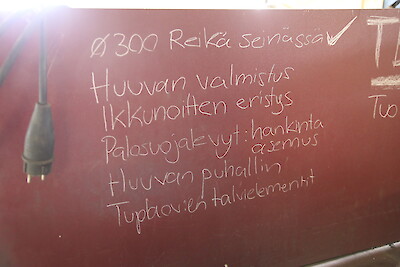 Ø300 Reikä seinässä ✓
Huuvan valmistus
Ikkunoitten eristys
Palosuojalevyt: hankinta
asennus
Huuvan puhallin
Tuplaov:en talvielementit
Tuo